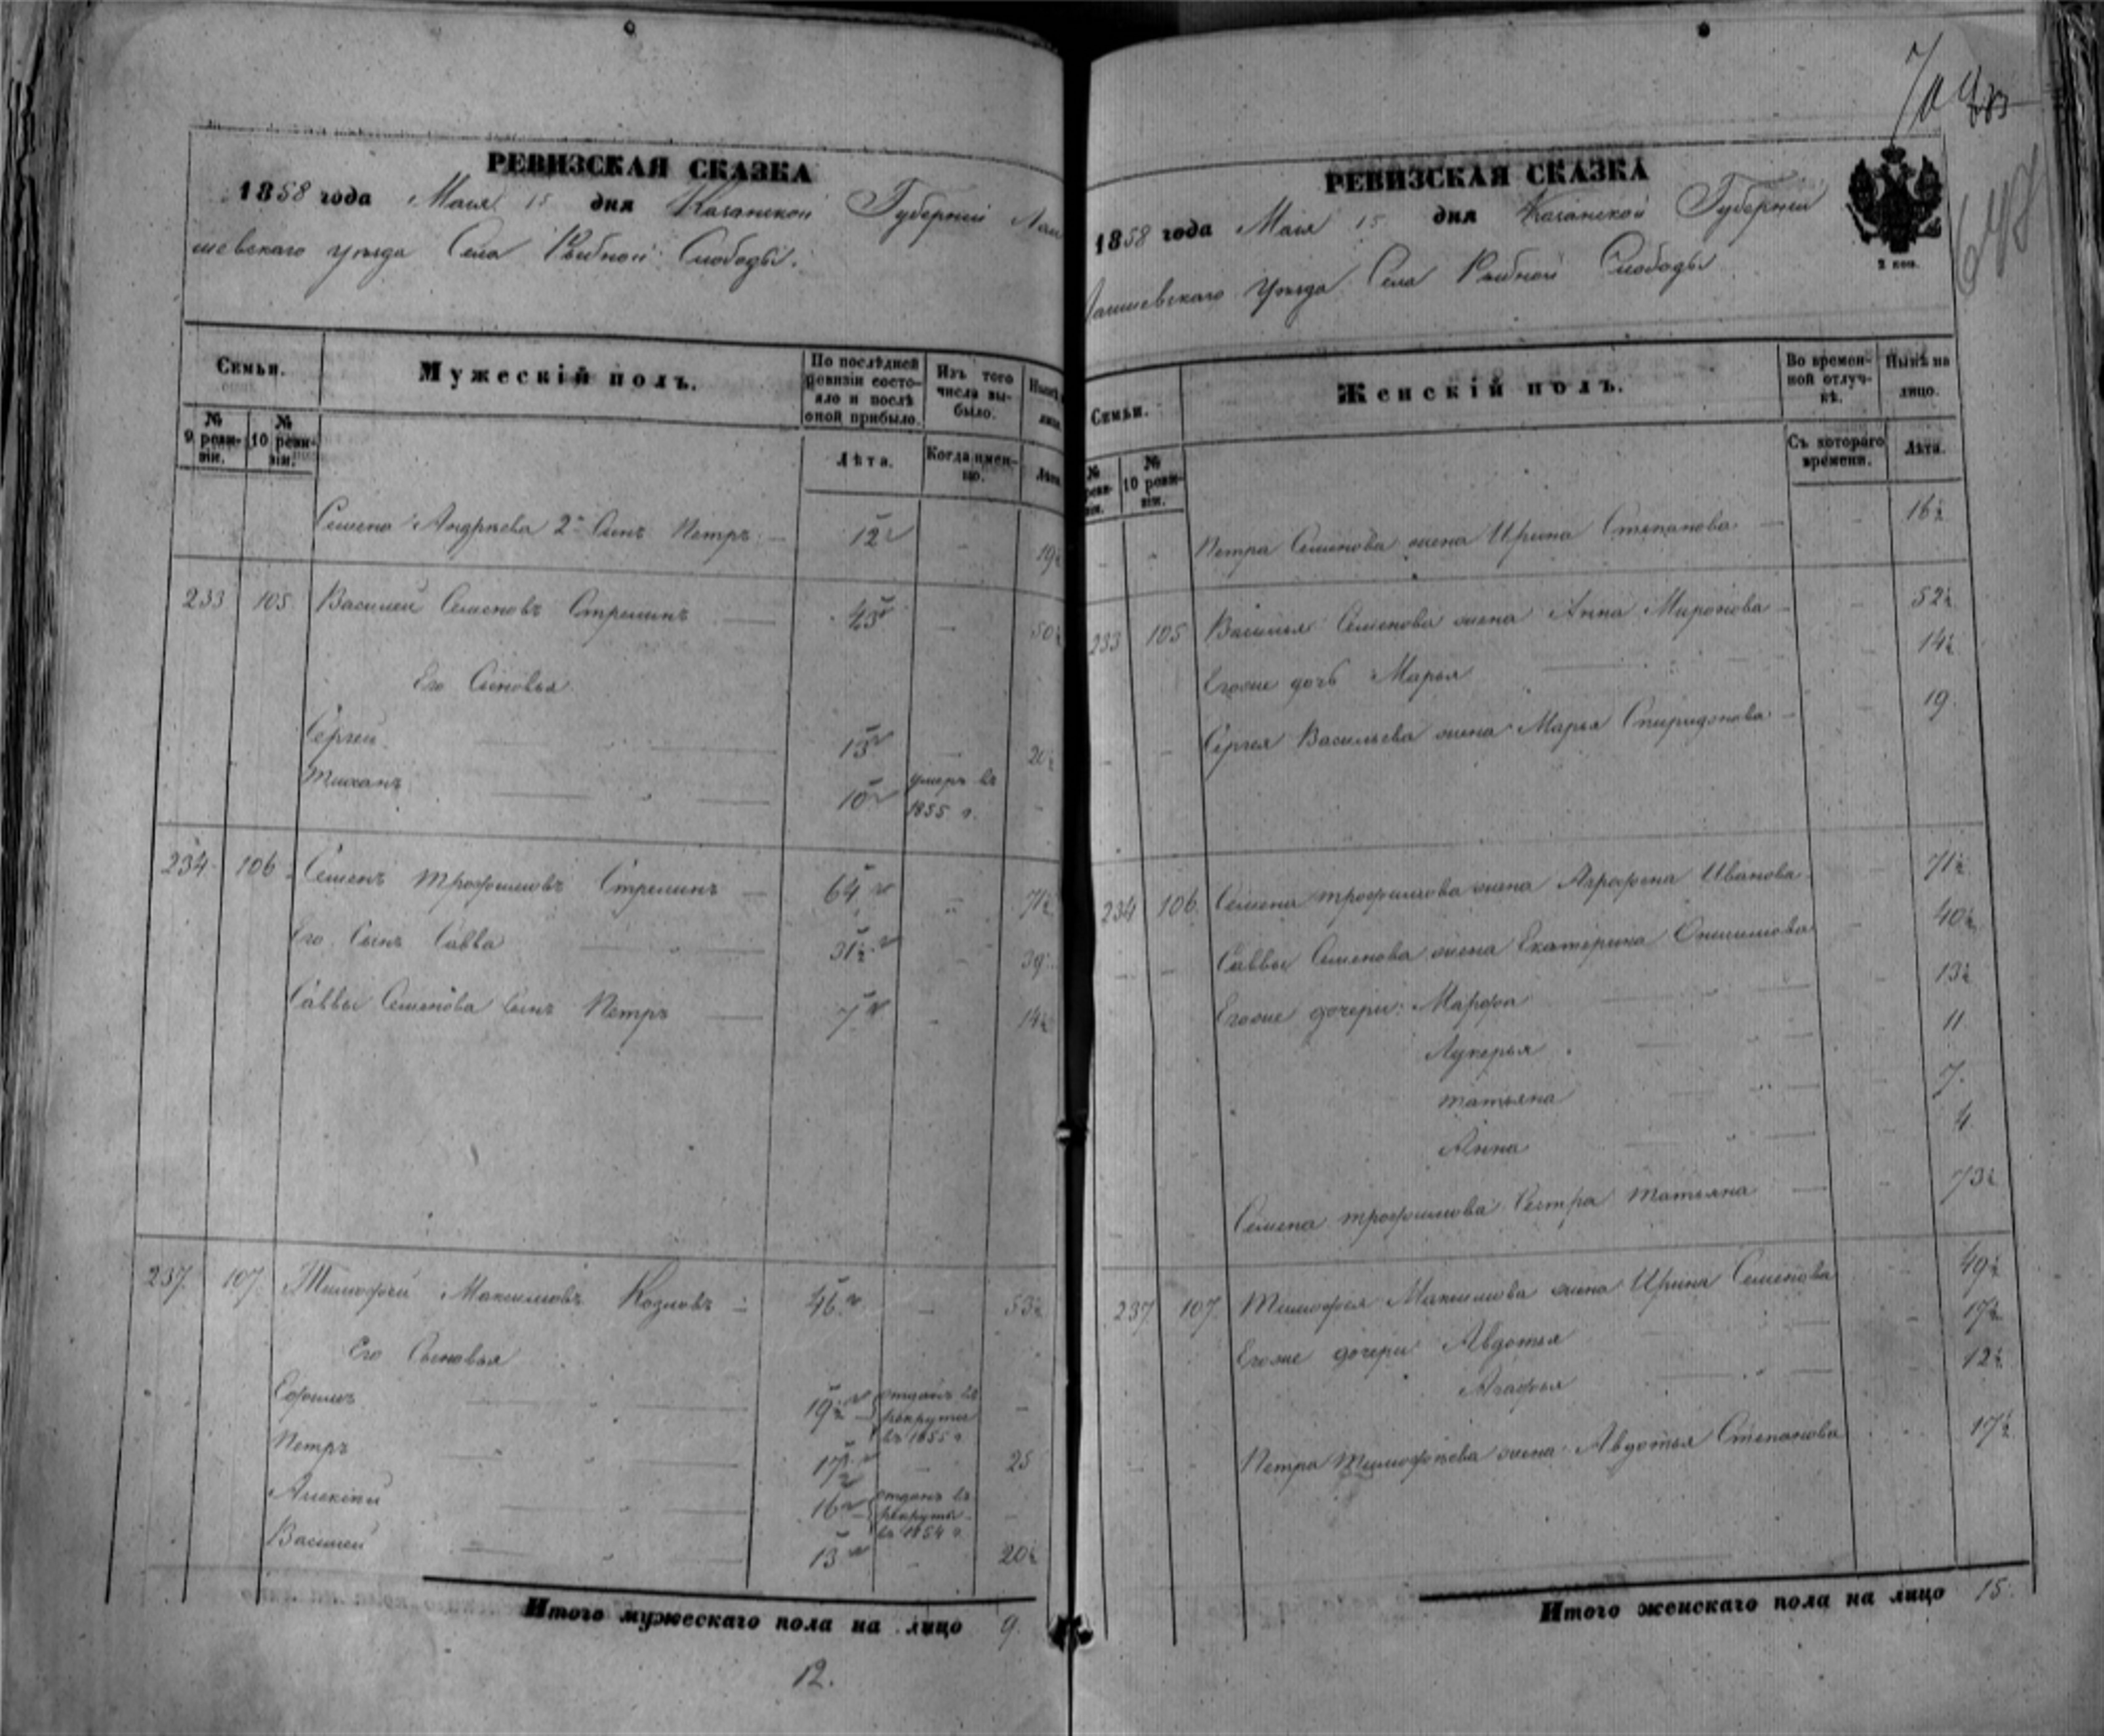 РЕВИЗСКАЯ СКАЗКА
1858 года Маія 15 дня Казанской Губерніи Лаи
шевскаго уѣзда Села Рыбной Слободы.
Семьи.
Мужескій полъ.
По послѣдней ревизіи состояло и послѣ оной прибыло.
Изъ того числа выбыло.
Нынѣ
лицо
№ 9 ревизіи.
№ 10 ревизіи.
Лѣта.
Когда именно.
Лѣта
Семена Андреева 2й Сынъ Петръ — 12 - 19½
233 105 Василий Семеновъ Стрешинъ — 43 — 50½
Его Сыновья
Сергей — 13 — 20½
Тиханъ — 10 умеръ въ 1855 г. -
234 106 Семенъ Трофимовъ Стрешинъ — 64 - 71½
Его Сынъ Савва — 31½ - 39
Саввы Семенова Сынъ Петръ — 7 - 14½
237 107 Тимофей Максимовъ Козловъ — 46 — 53½
Его Сыновья
Ефимъ — 19½ отданъ въ рекруты въ 1855 г. -
Петръ — 17½ - 25
Алексей — 16 отданъ въ рекруты въ 1854 г. -
Василей — 13 - 20½
Итого мужескаго пола на лицо 9.
12.
704
648
РЕВИЗСКАЯ СКАЗКА
1858 года Маія 15 дня Казанской Губерніи
Лаишевскаго Уѣзда Села Рыбной Слободы
2 коп.
Семьи.
Женскій полъ.
Во временной отлучкѣ.
Нынѣ на лицо.
№ ревизіи.
№ 10 ревизіи.
Съ котораго времени.
Лѣта.
Петра Семенова жена Ирина Степанова — - 16½
233 105 Василья Семенова жена Анна Миронова — - 52½
Егоже дочь Марья — - 14½
Сергея Васильева жена Марья Спиридонова — - 19
234 106. Семена Трофимова жена Аграфена Иванова - 71½
Саввы Семенова жена Екатерина Онисимова - 40½
Егоже дочери: Марфа — 13½
Лукерья — 11
Татьяна — 7.
Анна — 4
Семена Трофимова Сестра Татьяна — - 73½
237 107. Тимофея Максимова жена Ирина Семенова 49½
Егоже дочери Авдотья — 17½
Агафья — 12½
Петра Тимофеева жена Авдотья Степанова 17½
Итого женскаго пола на лицо 15.